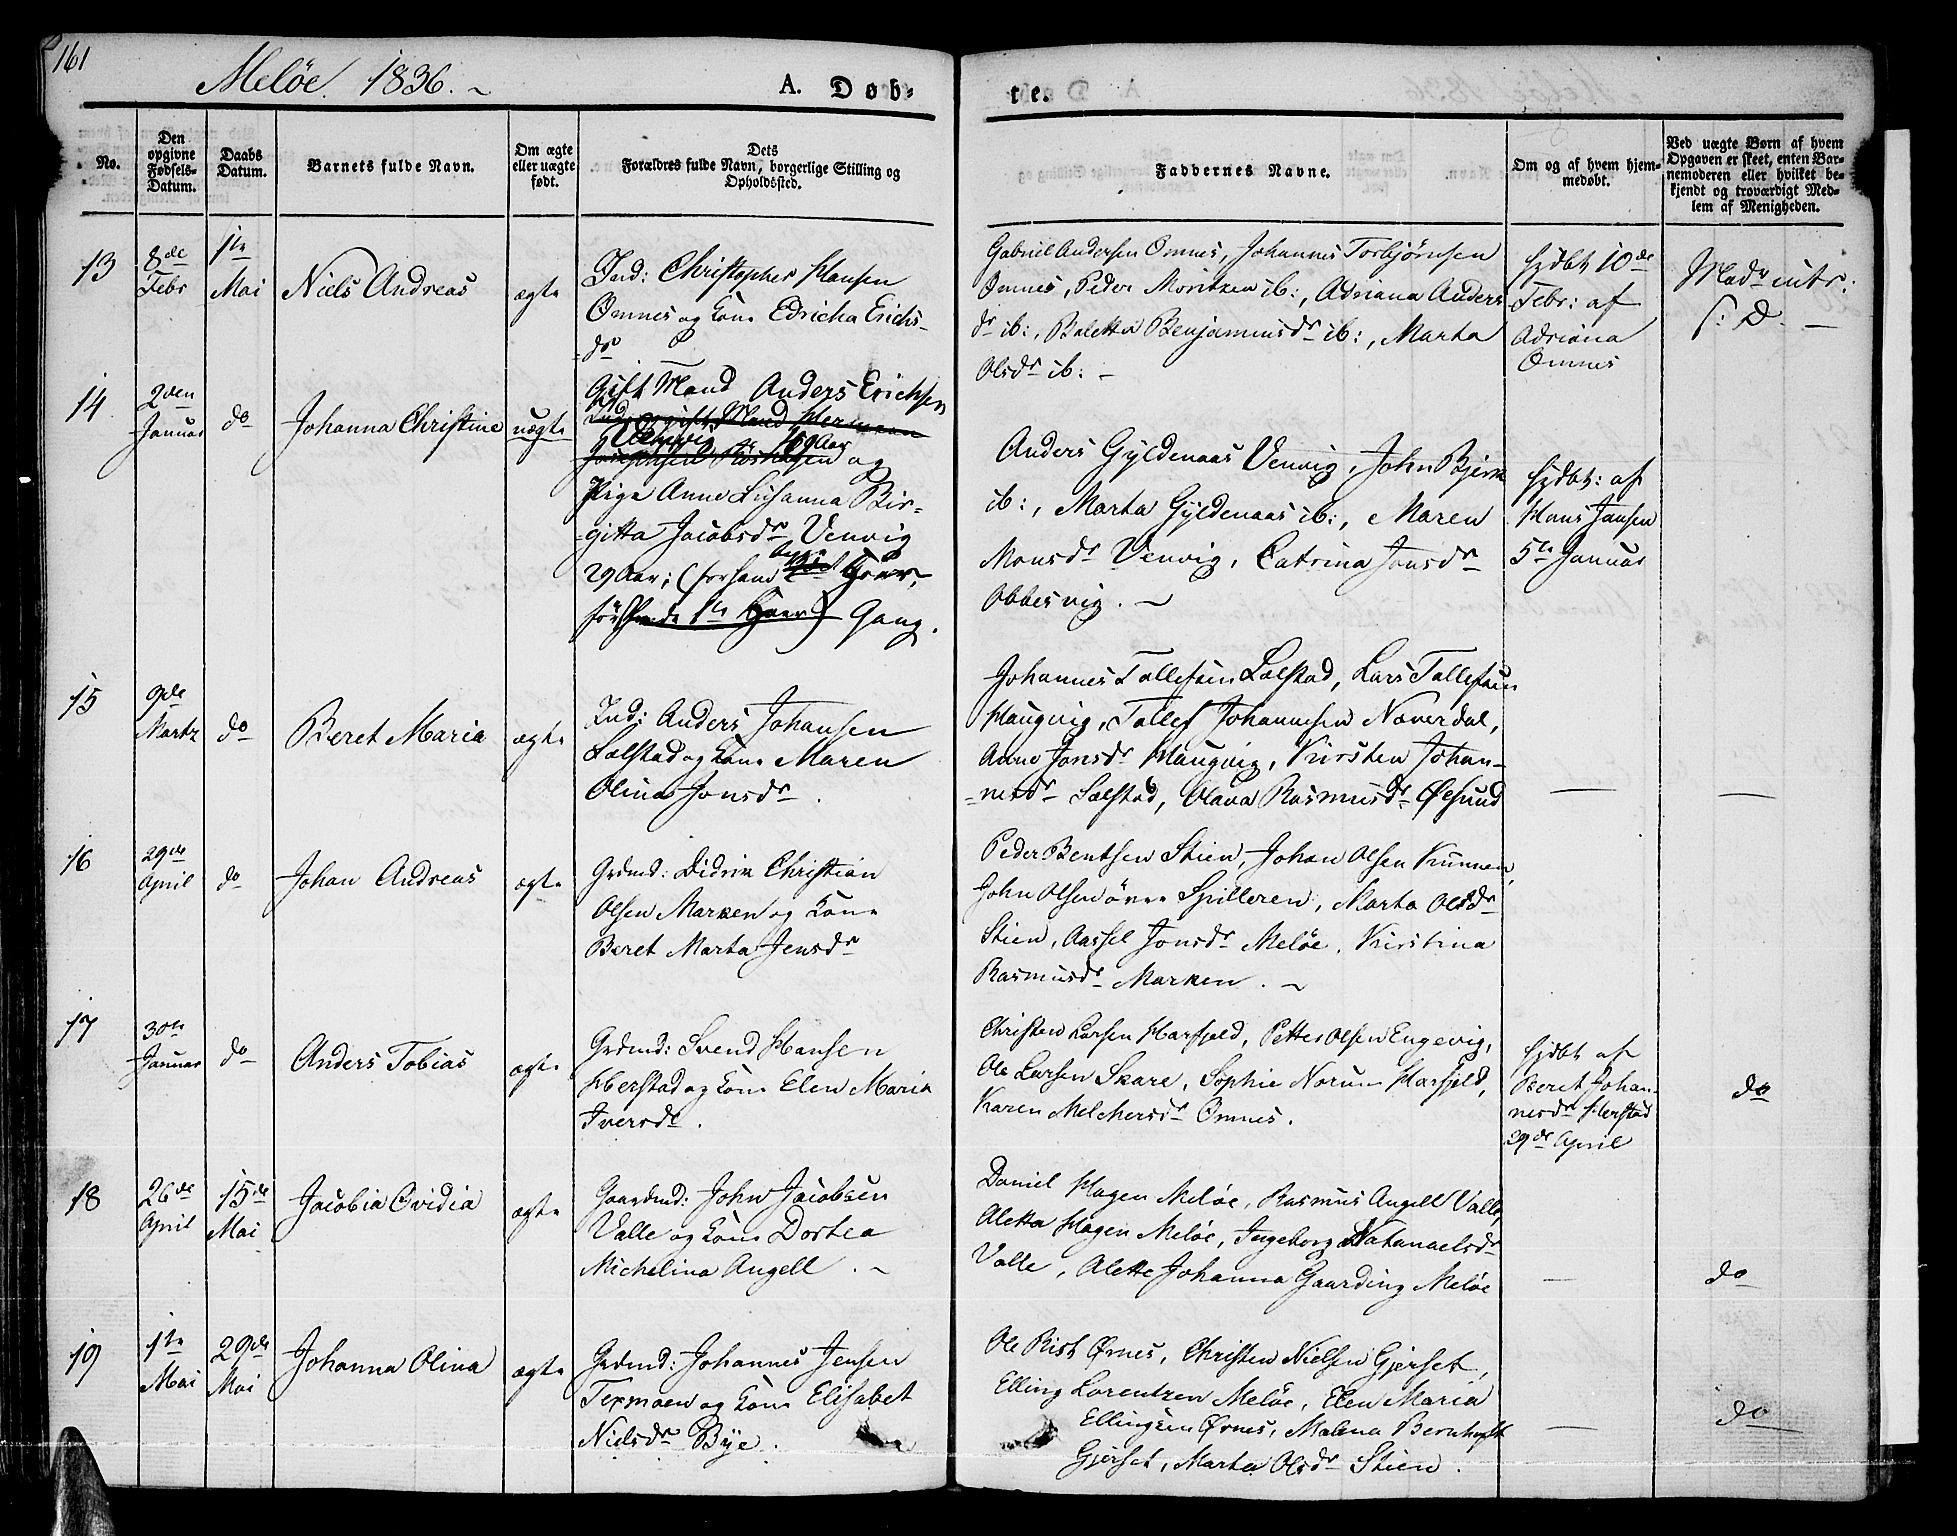 161
Meløe 1836.
A. Døb-
te.
No.
Den opgivne Fødsels-Datum.
Daabs Datum.
Barnets fulde Navn.
Om ægte eller uægte født.
Dets
Forældres fulde Navn, borgerlige Stilling og
Opholdssted.
Faddernes Navne.
Om og af hvem hjem-
medøbt.
Ved uægte Børn af hvem
Opgaven er skeet, enten Bar-
nemoderen eller hvilket be-
kjendt og troværdigt Med-
lem af Menigheden.
13
8de Febr
1te Mai
Niels Andreas
ægte
Ind: Christopher Hansen
Ømnes og Kone Edricka Erichs-
dr
Gabriel Andersen Ømnes, Johannes Torbjørnsen
Ømnes, Peder Moritzen ib:, Adriana Anders
dr ib:, Baletta Benjaminsdr ib:, Marta
Olsdr ib: -
hjdbt 10de
Febr: af
Adriana
Ømnes
Modr intr:
s: D. -
14
2den Januar
do
Johanna Christine
uægte
Gift Mand Anders Erichsen
Ind: gift Mand Herman
og
Pige Anne Susanna Bir-
gitta Jacobsdr Venvig
29 Aar; (forhand
Gang.
Anders Gyldenaas Venvig, John Bjerk
ib:, Marta Gyldenaas ib:, Maren
Monsdr Venvig, Catrina Jonsdr
Obbesvig. -
hjdbt: af
Hans Jansen
5te Januar
15
9de Martz
do
Beret Maria
ægte
Ind: Anders Johansen
Selstad og Kone Maren
Olina Jonsdr.
Johannes Tollefsen Selstad, Lars Tollefsen
Haugvig, Tollef Johannesen Næverdal,
Anne Jonsdr Haugvig, Kirsten Johan-
nesdr Selstad, Olava Rasmusdr Øesund
16
29de April
do
Johan Andreas
ægte
Grdmd: Didrik Christian
Olsen Marken og Kone
Beret Marta Jensdr
Peder Bentsen Stien, Johan Olsen Kunnen,
John Olsen øvre Spilleren, Marta Olsdr
Stien, Aassel Jonsdr Meløe, Kirstina
Rasmusdr Marken. -
17
30te Januar
do
Anders Tobias
ægte
Grdmd: Svend Hansen
Herstad og Kone Elen Maria
Iversdr.
Christen Larsen Harfjeld, Petter Olsen Engevig,
Ole Larsen Skare, Sophie Norum Harfjeld,
Karen Melchersdr Ømnes.
hjdbt af
Beret Johan-
nesdr Herstad
29de April
do
18
26de April
15de Mai
Jacobia Ovidia
ægte
Gaardmd: John Jacobsen
Valle og Kone Dortea
Michelina Angell. -
Daniel Hagen Meløe, Rasmus Angell Valle,
Aletta Hagen Meløe, Ingeborg Natanaelsdr
Valle, Alette Johanna Gaarding Meløe
do
19
1te Mai
29de Mai
Johanna Olina
ægte
Grdmd: Johannes Jensen
Texmoen og Kone Elisabet
Nielsdr Bye.
Ole Rist Ørnes, Christen Nielsen Gjerset,
Elling Lorentzen Meløe, Elen Maria
Ellingsen Ørnes, Malena Bernhoft
Gjerset, Marta Olsdr Stien.
do